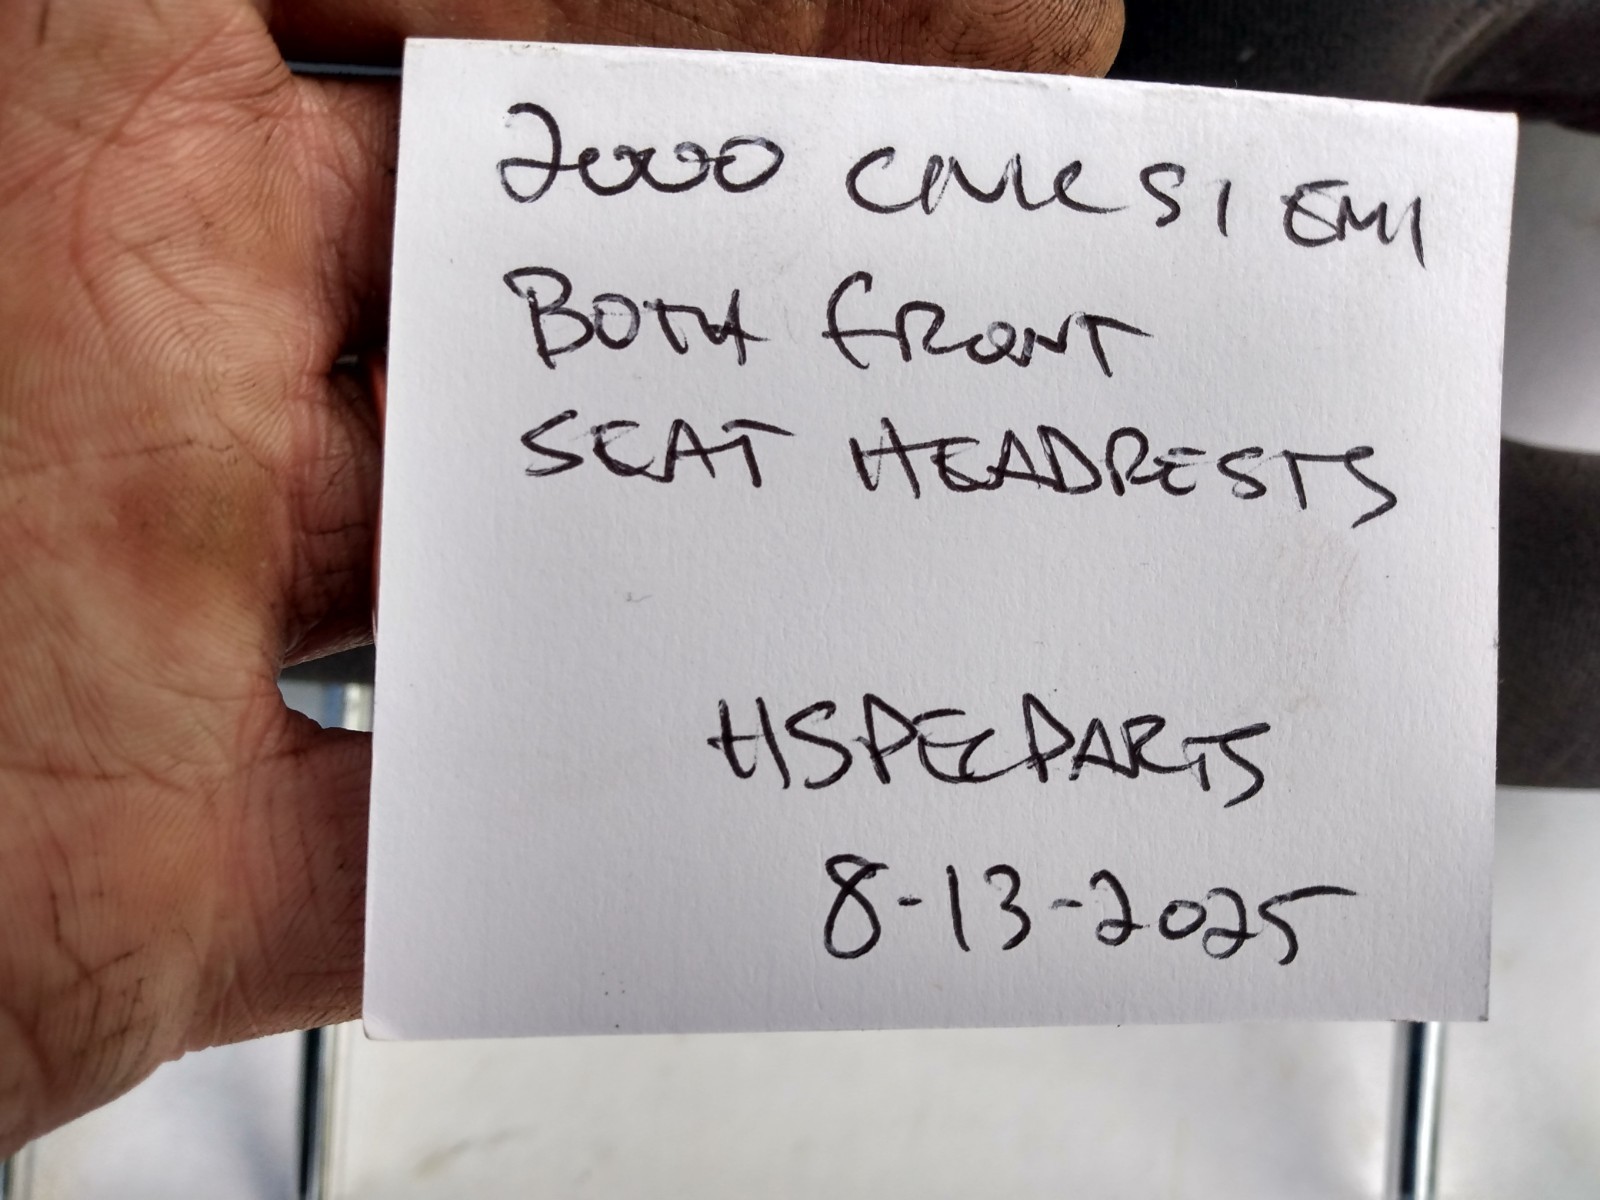 2000 CIVIC SI EM1
BOTH FRONT
SEAT HEADRESTS
HSPECPARTS
8-13-2025